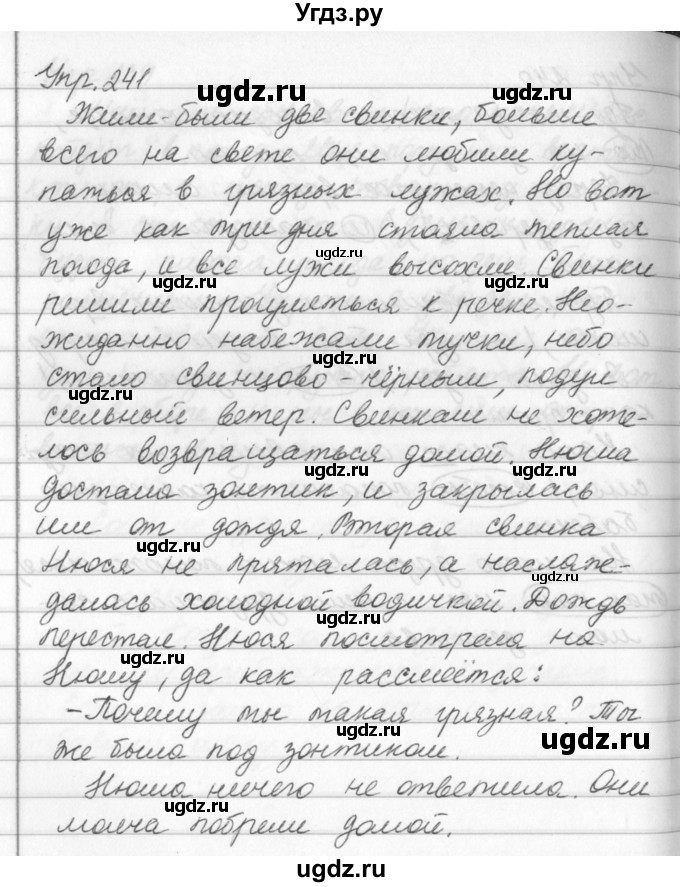 Угдз.ру
Упр. 241
ugdz.ru
Жили-были две свинки, больше
всего на свете они любили ку-
паться в грязных лужах. Но вот
уже как три дня стояла теплая
ugdz.ru
погода, и все лужи высохли. Свинки
ugdz.ru
решили прогуляться к речке. Нео-
жиданно набежали тучки, небо
ugdz.ru
стало свинцово-чёрным, подул
ugdz.ru
сильный ветер. Свинкам не хоте-
лось возвращаться домой. Нюша
ugdz.ru
ugdz.ru
достала зонтик, и закрылась
им от дождя. Вторая свинка
ugdz.ru
Нюся не пряталась, а наслаж-
ugdz.ru
далась холодной водичкой. Дождь
перестал. Нюся посмотрела на
ugdz.ru
Нюшу, да как рассмеётся:
- Почему ты такая грязная? Ты
же была под зонтиком.
ugdz.ru
Нюша ничего не ответила. Они
ugdz.ru
молча побрели домой.
ugdz.ru